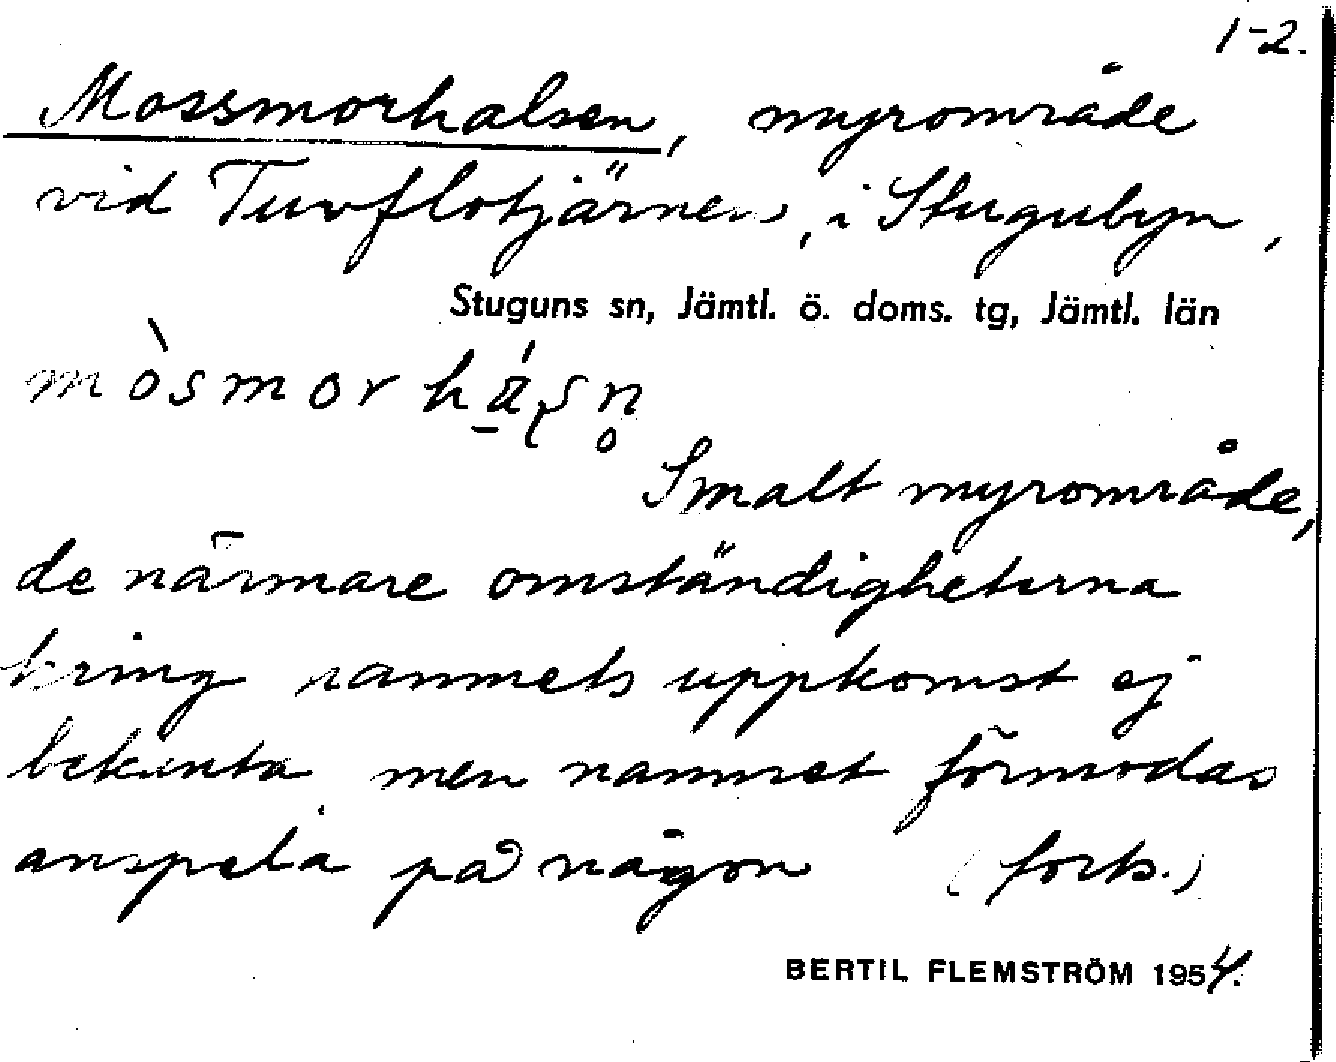 1-2.
Mossmorhalsen, myrområde
vid Tuvflotjärnen, i Stugubyn,
Stuguns sn, Jämtl. ö. doms. tg, Jämtl. län
Smalt myrområde,
de närmare omständigheterna
kring namnets uppkomst ej
bekanta, men namnet förmodas
anspela på någon (forts.)
BERTIL FLEMSTRÖM 1954.